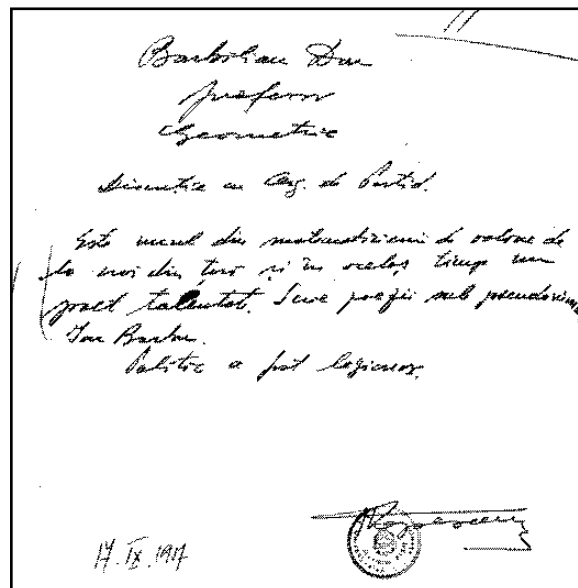 Barbilian Dan
profesor
Geometrie
Discuție cu Org. de Partid.
Este unul din matematicieni de valoare de
la noi din țară și în același timp un
poet talentat. Scrie poezii sub pseudonimul
Ion Barbu.
Politic a fost legionar.
17.IX.1947